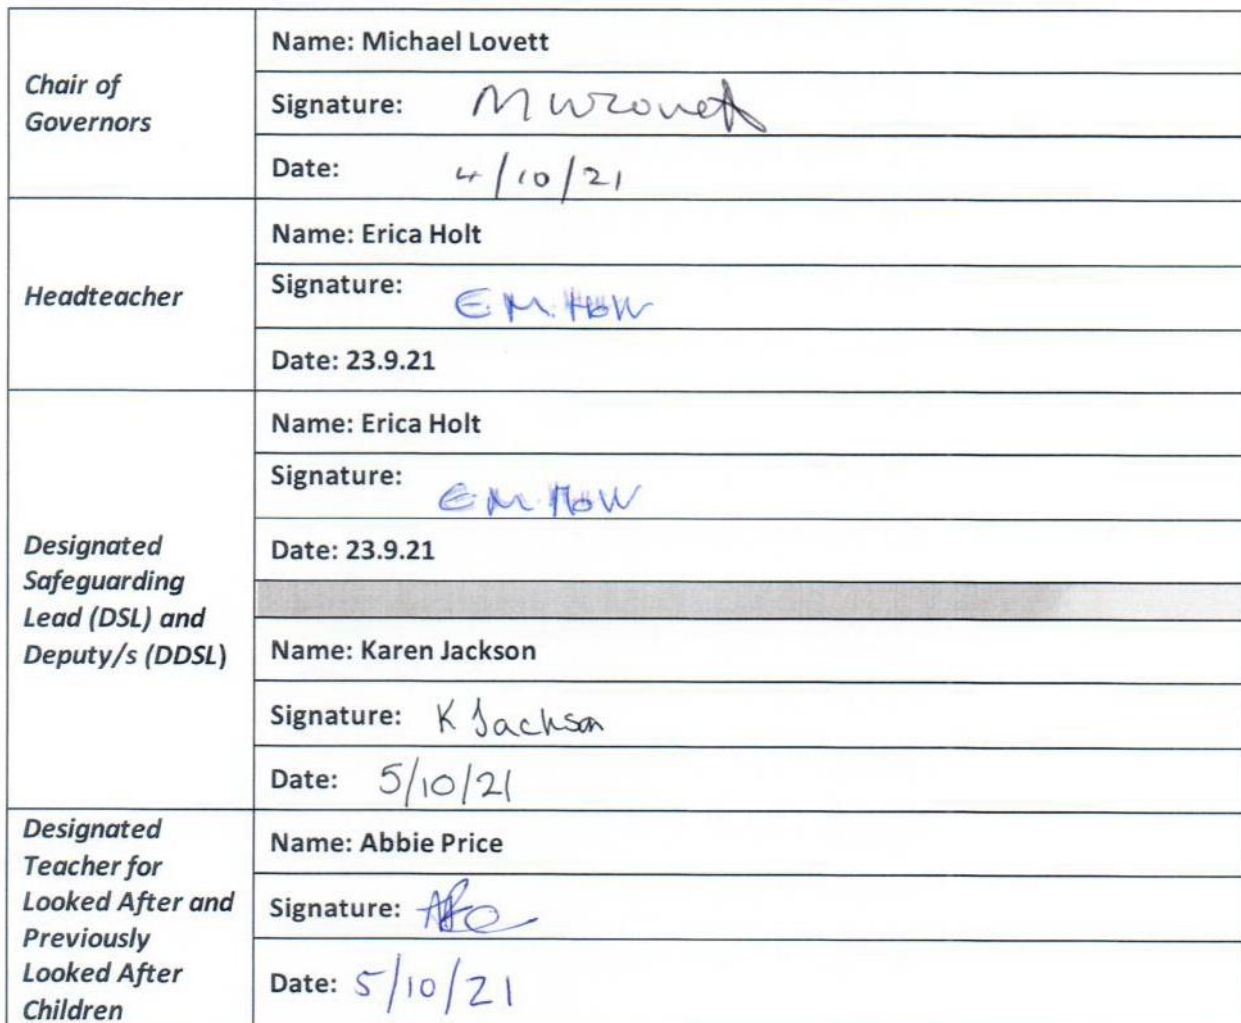 Chair of
Governors
Name: Michael Lovett
Signature: M W Lovett
Date: 4/10/21
Headteacher
Name: Erica Holt
Signature: E.M. Holt
Date: 23.9.21
Designated
Safeguarding
Lead (DSL) and
Deputy/s (DDSL)
Name: Erica Holt
Signature: E.M. Holt
Date: 23.9.21
Name: Karen Jackson
Signature: K Jackson
Date: 5/10/21
Designated
Teacher for
Looked After and
Previously
Looked After
Children
Name: Abbie Price
Signature:
Date: 5/10/21